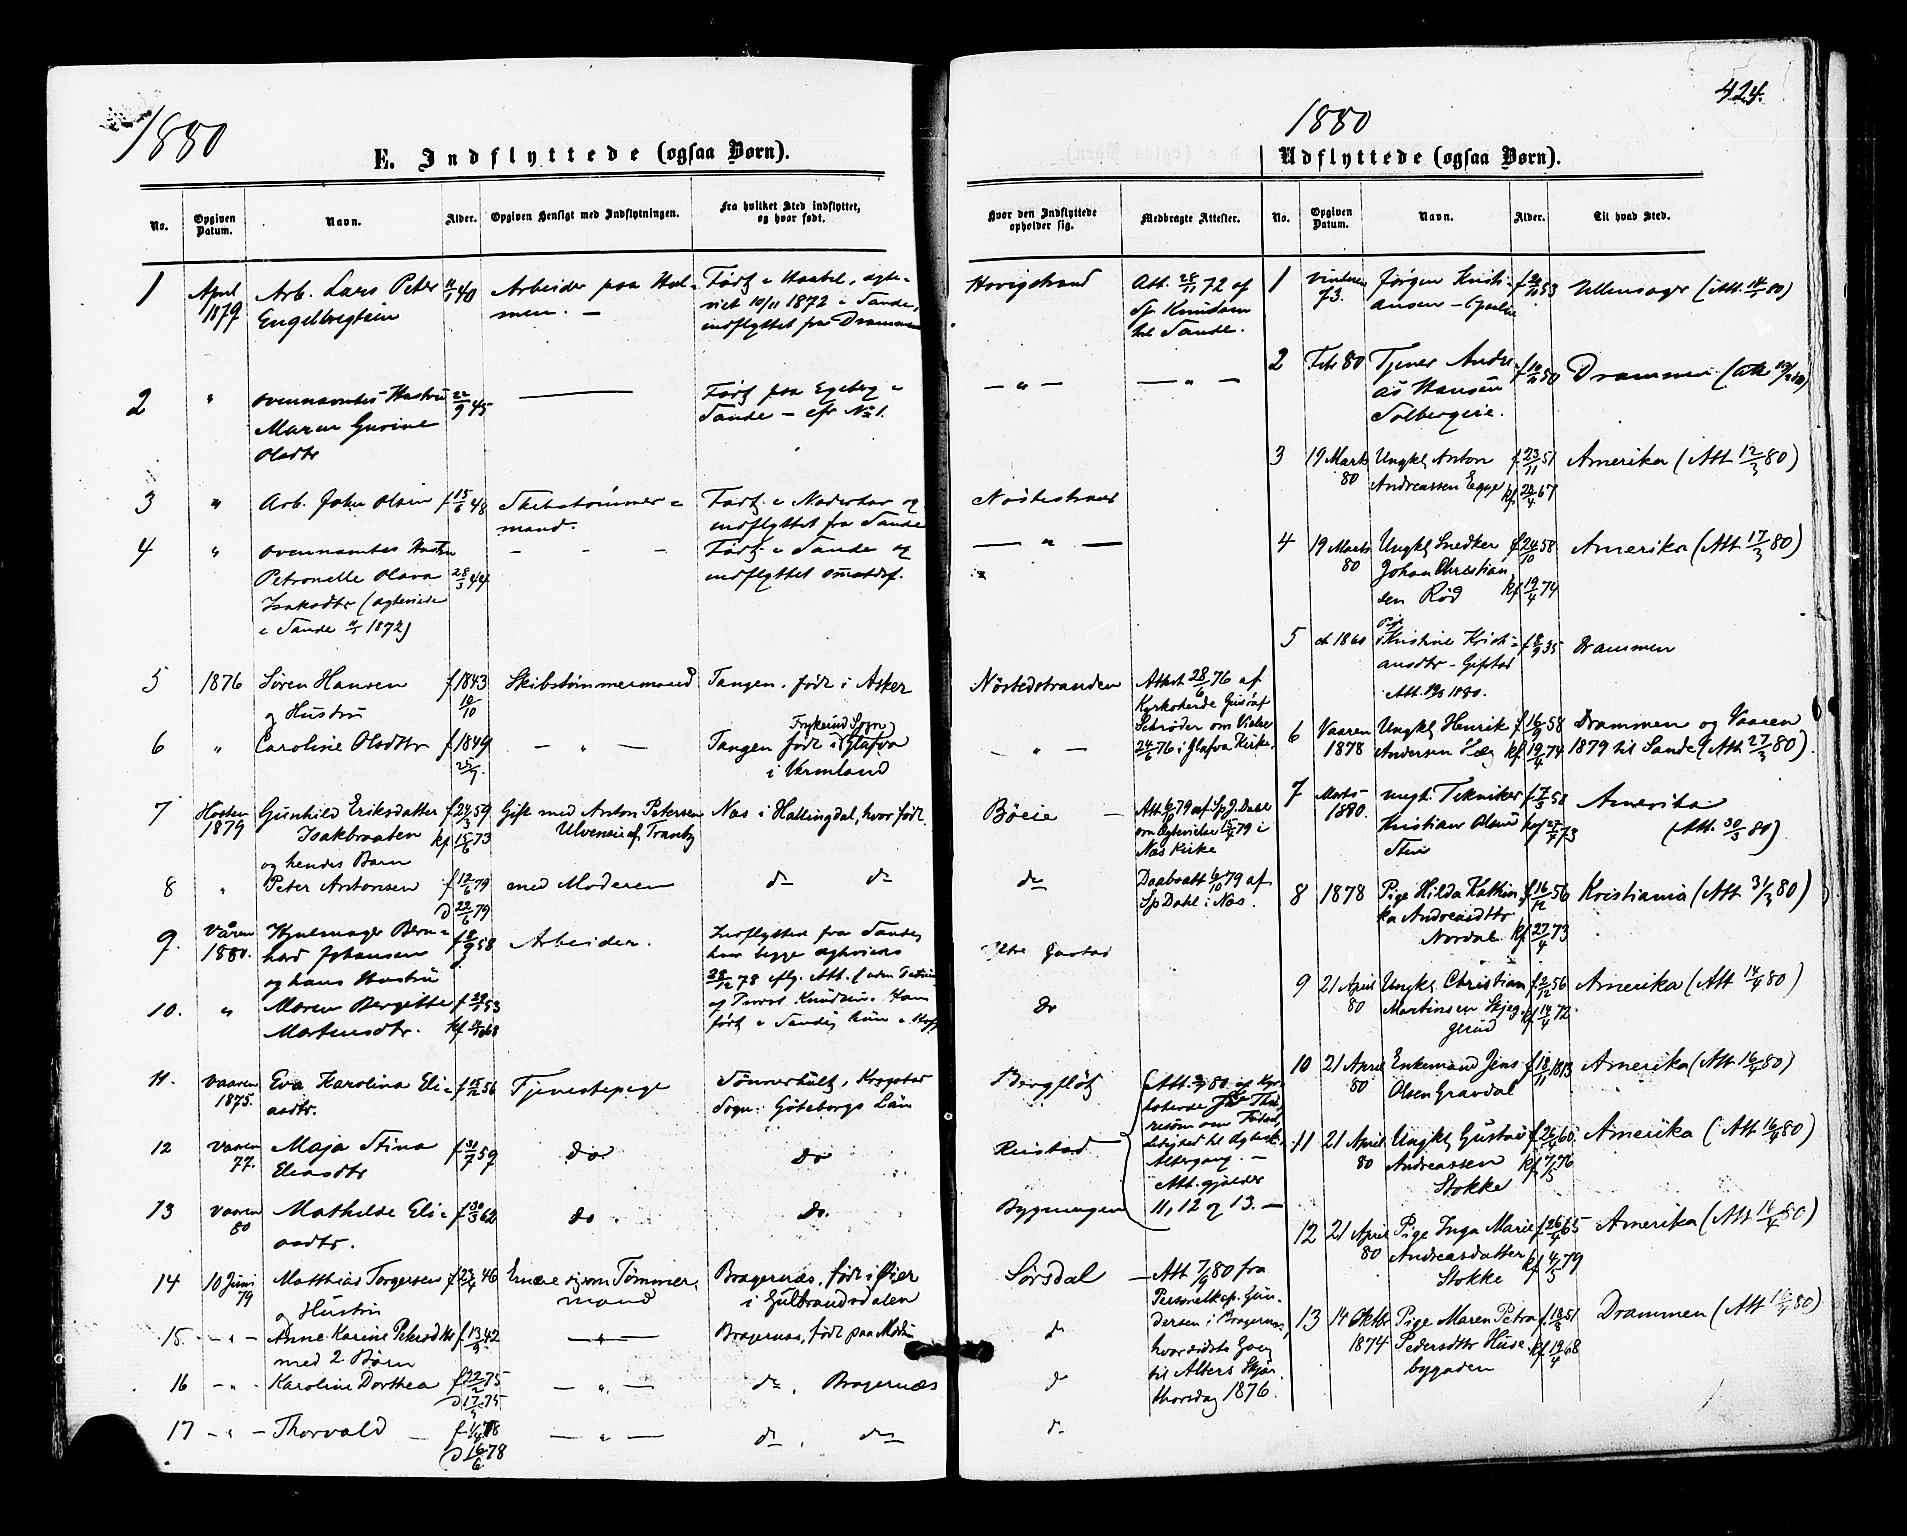 1880
E. Indflyttede (ogsaa Børn).
No.
Opgiven Datum.
Navn.
Alder.
Opgiven Hensigt med Indflytningen.
Fra hvilket Sted indflyttet, og hvor født.
1
April 1879
Arb. Lars Peter
Engelbregtsen
40
Arbeider paa Hol-
men. —
Født i
10/11 1872 i Sande,
indflyttet fra Drammen
2
"
ovennævntes Hustru
Maren Gurine
Olsdtr
22/9 45
Født paa Egeberg i
Sande — cfr No 1.
3
"
Arb. John Olsen
f 15/6 48
Skibstømmer-
mand.
Født i og
indflyttet fra Sande
4
"
ovennævntes Hustru
Petronelle Olava
Isaksdtr (ægteviede
i Sande 1872)
28/3 44
- - -
Født i Sande og
indflyttet
5
1876
Søren Hansen
og Hustru
f 1843
10/10
Skibstømmermand
Tangen, født i Asker
6
"
Caroline Olsdttr
f 1849
25/9.
— " —
Frykerud Sogn
Tangen født i Glafva
i Vermland
7
Høsten
1879
Gunhild Eriksdatter
Isakbraaten
og hendes Barn
f 24/3 59
kf 15/6 73
Gift med Anton Petersen
Ulveneie af Tranby
Næs i Hallingdal, hvor født
8
"
Peter Antonsen
f 12/6 79
d 22/6 79
med Moderen
do do
9.
Våren
1880.
Hjulmager Bern-
hard Johansen
og hans Hustru
f 18/3 58
Arbeider.
Indflyttede fra Sande,
hvor begge ægteviedes
28/12 78 eflg. Att. (uden Datum
af Provst Knudsen. Han
født i Sande, hun i Hoff
10.
"
Maren Bergitte
Mortensdtr.
53
kf 68
11.
Vaaren
1875.
Eva Karolina Eli-
asdtr.
f 56
Tjenestepige
Tönnerhült, Krogstad
Sogn. Göteborgs Län
12
Vaaren
77.
Maja Stina
Eliasdtr
f 31/7 59
do
do
13
Vaaren
80
Mathilde Eli-
asdtr.
f 30/3 62
do.
do.
14
10 Juni
79
Matthias Torgersen
og Hustru
f 23/4 46
Ernære sig som Tømmer
mand
Bragernæs, født i Øier
i Gulbrandsdalen
15.
— " —
Anne Karine Pedersdtr
med 2 Børn
f 13/9 42
— " —
Bragernæs, født paa Modum
16
— " —
Karoline Dorthea
f 22/2 75
d 17/5 75
— " —
do, Bragernæs
17
— " —
Thorvald
f 1/4 78
d 16/6 78
— " —
do, do
424.
1880
Udflyttede (ogsaa Børn).
Hvor den Indflyttede opholder sig.
Medbragte Attester.
No.
Opgiven Datum.
Navn.
Alder.
Til hvad Sted.
Horigstrand
Att. 28/11 72 af
Sp. Knudsen
til Sande.
— " —
— " —
Nøstestrand
— " —
Nøstedstranden
Attest 28/6 76 af
Kyrkoherde Gustaf
Schrøder om Vielse
24/6 76 i Glafva Kirke.
— " —
Bøeie —
Att 6/10 79 af Sp J. Dahl
om Ægtevielse 15/4 79 i
Næs Kirke
do
Daabsatt 6/10 79 af
Sp Dahl i Næs.
do
Bergfløt
Att. 80 af Kyr-
Altergang. —
Att. gjælder
11, 12 og 13. —
Bygningen
Sørsdal
— Att 7/9 80 fra
Personelkap. Gun-
dersen i Bragernæs,
hvor sidste Gang
til Alters Skjær-
thorsdag 1876.
do
do
do
1
Vinteren
73.
Jørgen Kristi-
ansen
f 53
Ullensager (Att. 80)
2
Feb 80
Tjener Andre-
as Hansen
Solbergeie.
f 50
Drammen (Att 80)
3
19 Marts
80
Ungkl Anton
Andreassen Egge
f 23/11 51
kf 28/4 67
Amerika (Att 12/3 80)
4
19 Marts
80
Ungkl Snedker
Johan Christian
sen Rød
f 24/10 58
kf 19/4 74
Amerika (Att 17/3 80)
5
ct 1860
Pige
Kristine Kristi-
ansdtr — Gifstad
Att. 1880.
f 8/9 35
Drammen
6
Vaaren
1878
Ungkl Henrik
Andersen
f 16/9 58
kf 19/4 74
Drammen og Vaaren
1879 til Sande (Att 27/3 80)
7
Marts
1880.
Ungk. Tekniker
Kristian Olsen
f 7/3 58
kf 27/4 73
Amerika
(Att. 30/3 80)
8
1878
Pige Hilda Kathin-
ka Andreasdtr
Nordal
f 16/12 56
kf 27/4 73
Kristiania (Att 31/3 80)
9
21 April
80
Ungkl Christian
Martinsen Skjeg-
grud
f 2/12 56
kf 14/4 72
Amerika (Att 14/4 80)
10
21 April
80
Enkemand Jens
Olsen Gravdal
f 18/11 1813
Amerika (Att 16/4 80)
11
21 April
80
Ungkl Gustav
Andreassen
Stokke
f 26/4 60
kf 7/5 76
Amerika (Att 16/4 80)
12
21 April
80
Pige Inga Marie
Andreasdatter
Stokke
f 26/4 65
kf 4/5 79
Amerika (Att 16/4 80)
13
14 Oktbr
1874
Pige Maren Petra
Pedersdttr Huse-
bygaden
f 18/8 51
kf 19/4 68
Drammen (Att 80)